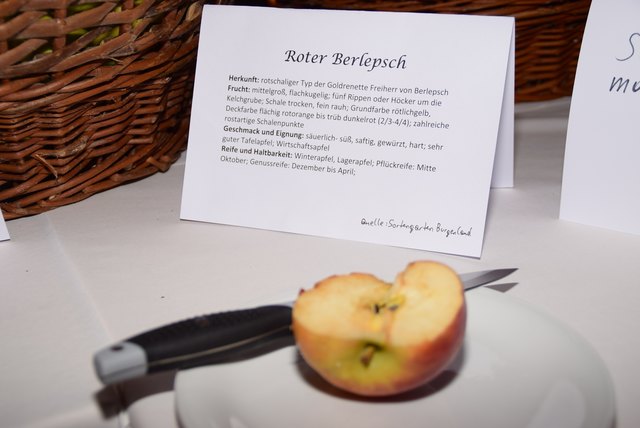 Roter Berlepsch
Herkunft: rotschaliger Typ der Goldrenette Freiherr von Berlepsch
Frucht: mittelgroß, flachkugelig; fünf Rippen oder Höcker um die
Kelchgrube; Schale trocken, fein rauh; Grundfarbe rötlichgelb,
Deckfarbe flächig rotorange bis trüb dunkelrot (2/3-4/4); zahlreiche
rostartige Schalenpunkte
Geschmack und Eignung: säuerlich- süß, saftig, gewürzt, hart; sehr
guter Tafelapfel; Wirtschaftsapfel
Reife und Haltbarkeit: Winterapfel, Lagerapfel; Pflückreife: Mitte
Oktober; Genussreife: Dezember bis April;
Quelle: Sortengarten Burgenland